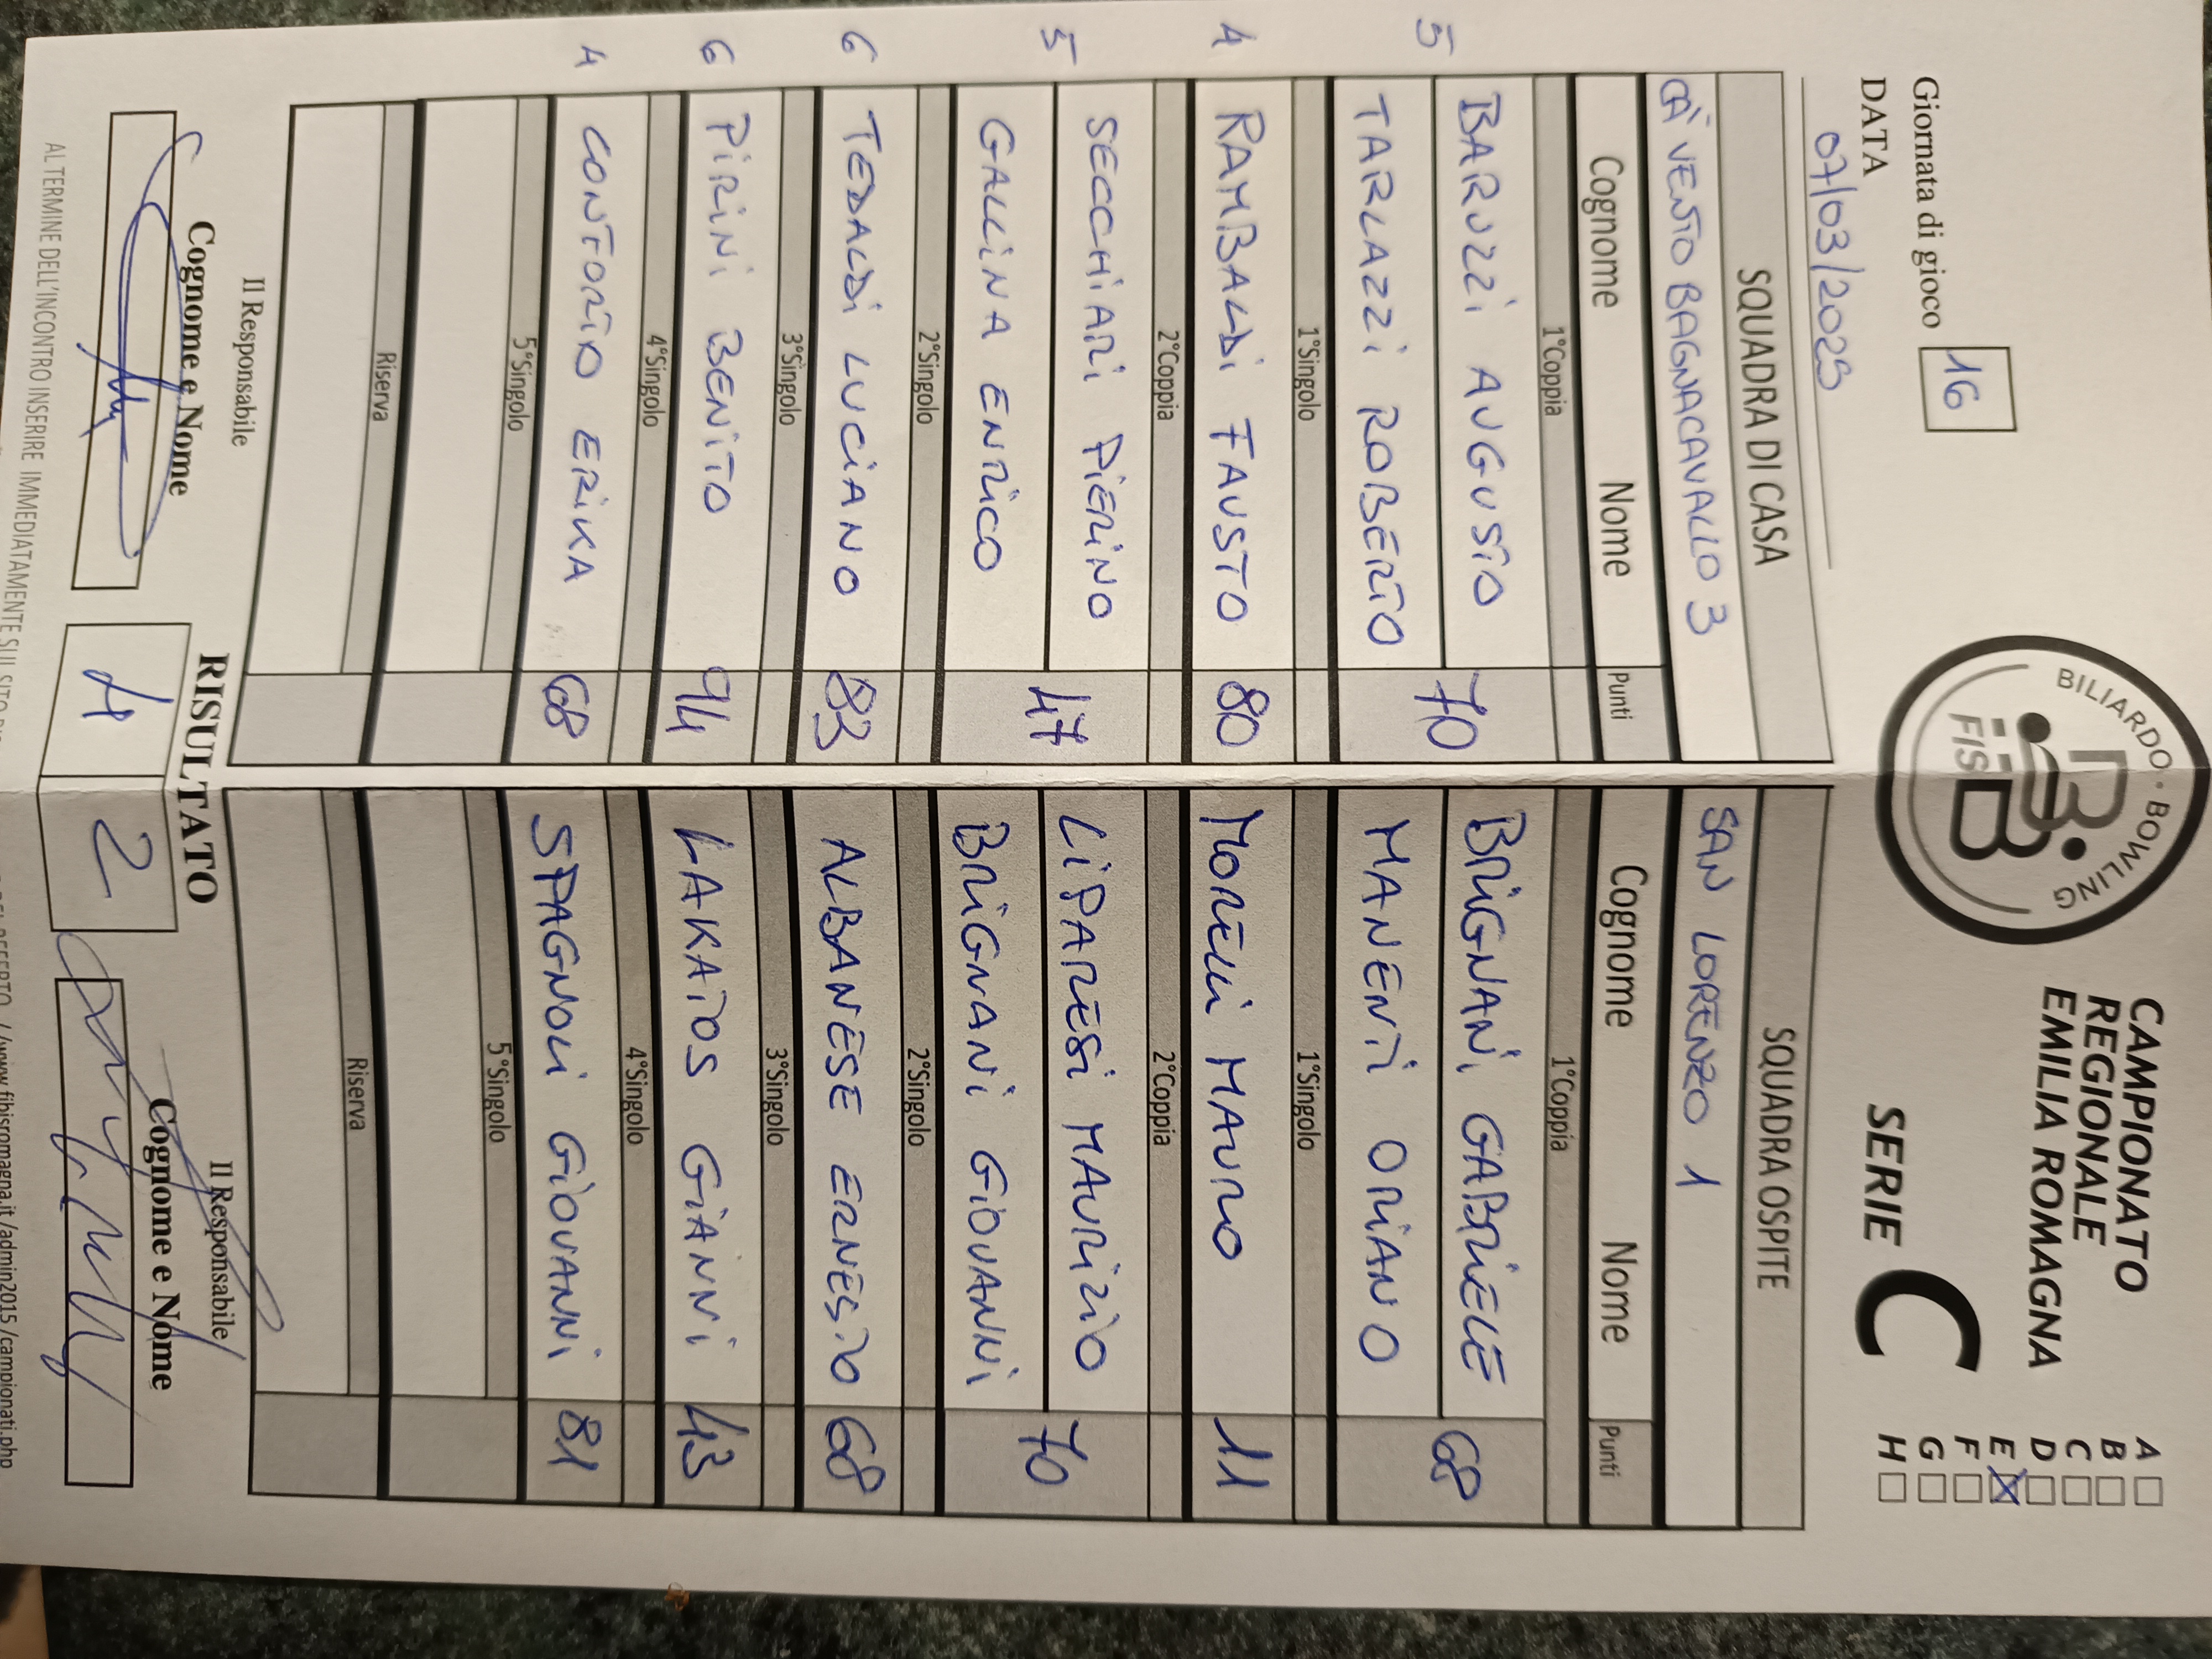 Giornata di gioco 16
DATA
07/03/2023
BILIARDO · BOWLING
FISBB
CAMPIONATO
REGIONALE
EMILIA ROMAGNA
SERIE C
A
B
C
D
E X
F
G
H
SQUADRA DI CASA
CÀ VENTO BAGNACAVALLO 3
Cognome Nome Punti
1°Coppia
5 BARUZZI AUGUSTO 70
TARLAZZI ROBERTO
1°Singolo
4 RAMBALDI FAUSTO 80
2°Coppia
5 SECCHIARI PIERINO 47
GALLINA ENRICO
2°Singolo
6 TEDALDI LUCIANO 83
3°Singolo
6 PIRINI BENITO 94
4°Singolo
4 CONTORTO ERIKA 68
5°Singolo
Riserva
SQUADRA OSPITE
SAN LORENZO 1
Cognome Nome Punti
1°Coppia
BRIGNANI GABRIELE 68
MANENTI ORIANO
1°Singolo
MORELLI MAURO 11
2°Coppia
LIPARESI MAURIZIO 70
BRIGNANI GIOVANNI
2°Singolo
ALBANESE ERNESTO 68
3°Singolo
LAKATOS GIANNI 43
4°Singolo
SPAGNOLI GIOVANNI 81
5°Singolo
Riserva
Il Responsabile
Cognome e Nome
RISULTATO
4 2
Il Responsabile
Cognome e Nome
AL TERMINE DELL'INCONTRO INSERIRE IMMEDIATAMENTE SUL SITO
/www.fibisromagna.it/admin2015/campionati.php